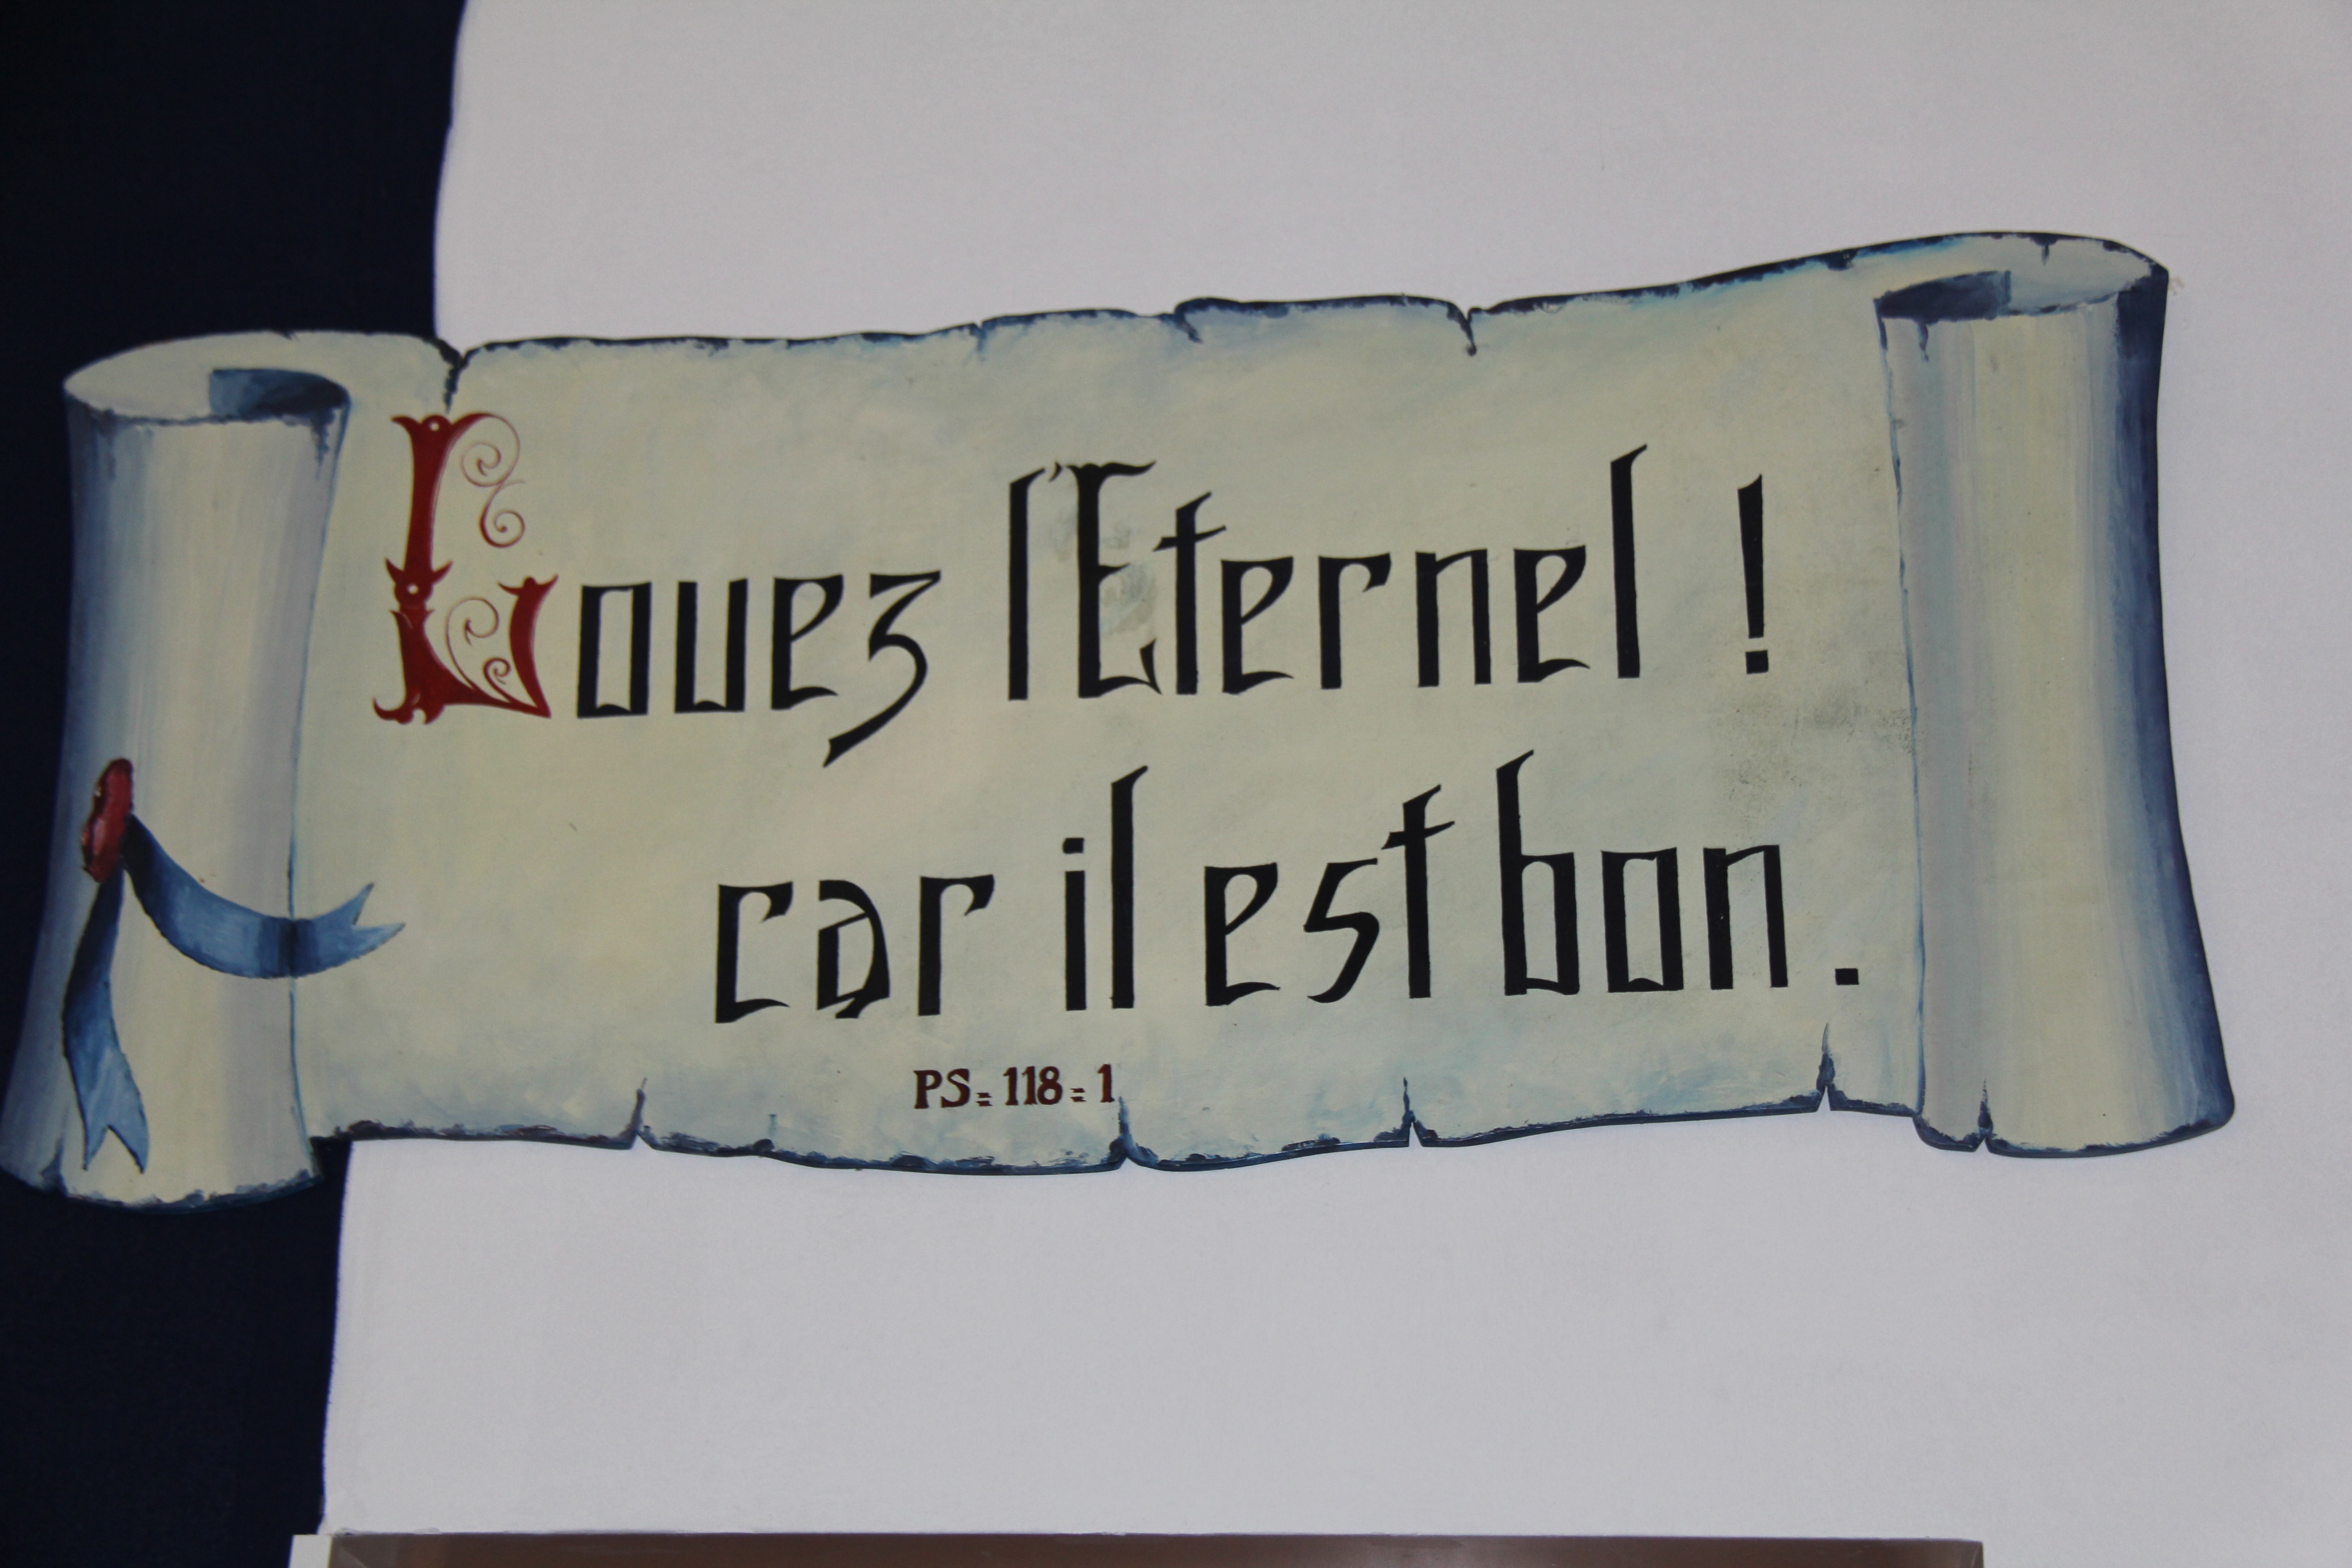 Louez l'Eternel !
car il est bon.
PS = 118 = 1